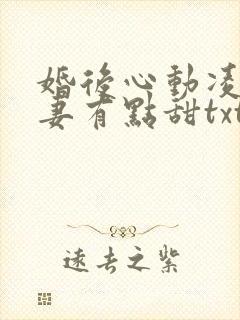 婚後心動凌
妻有點甜txt
遠去之紫